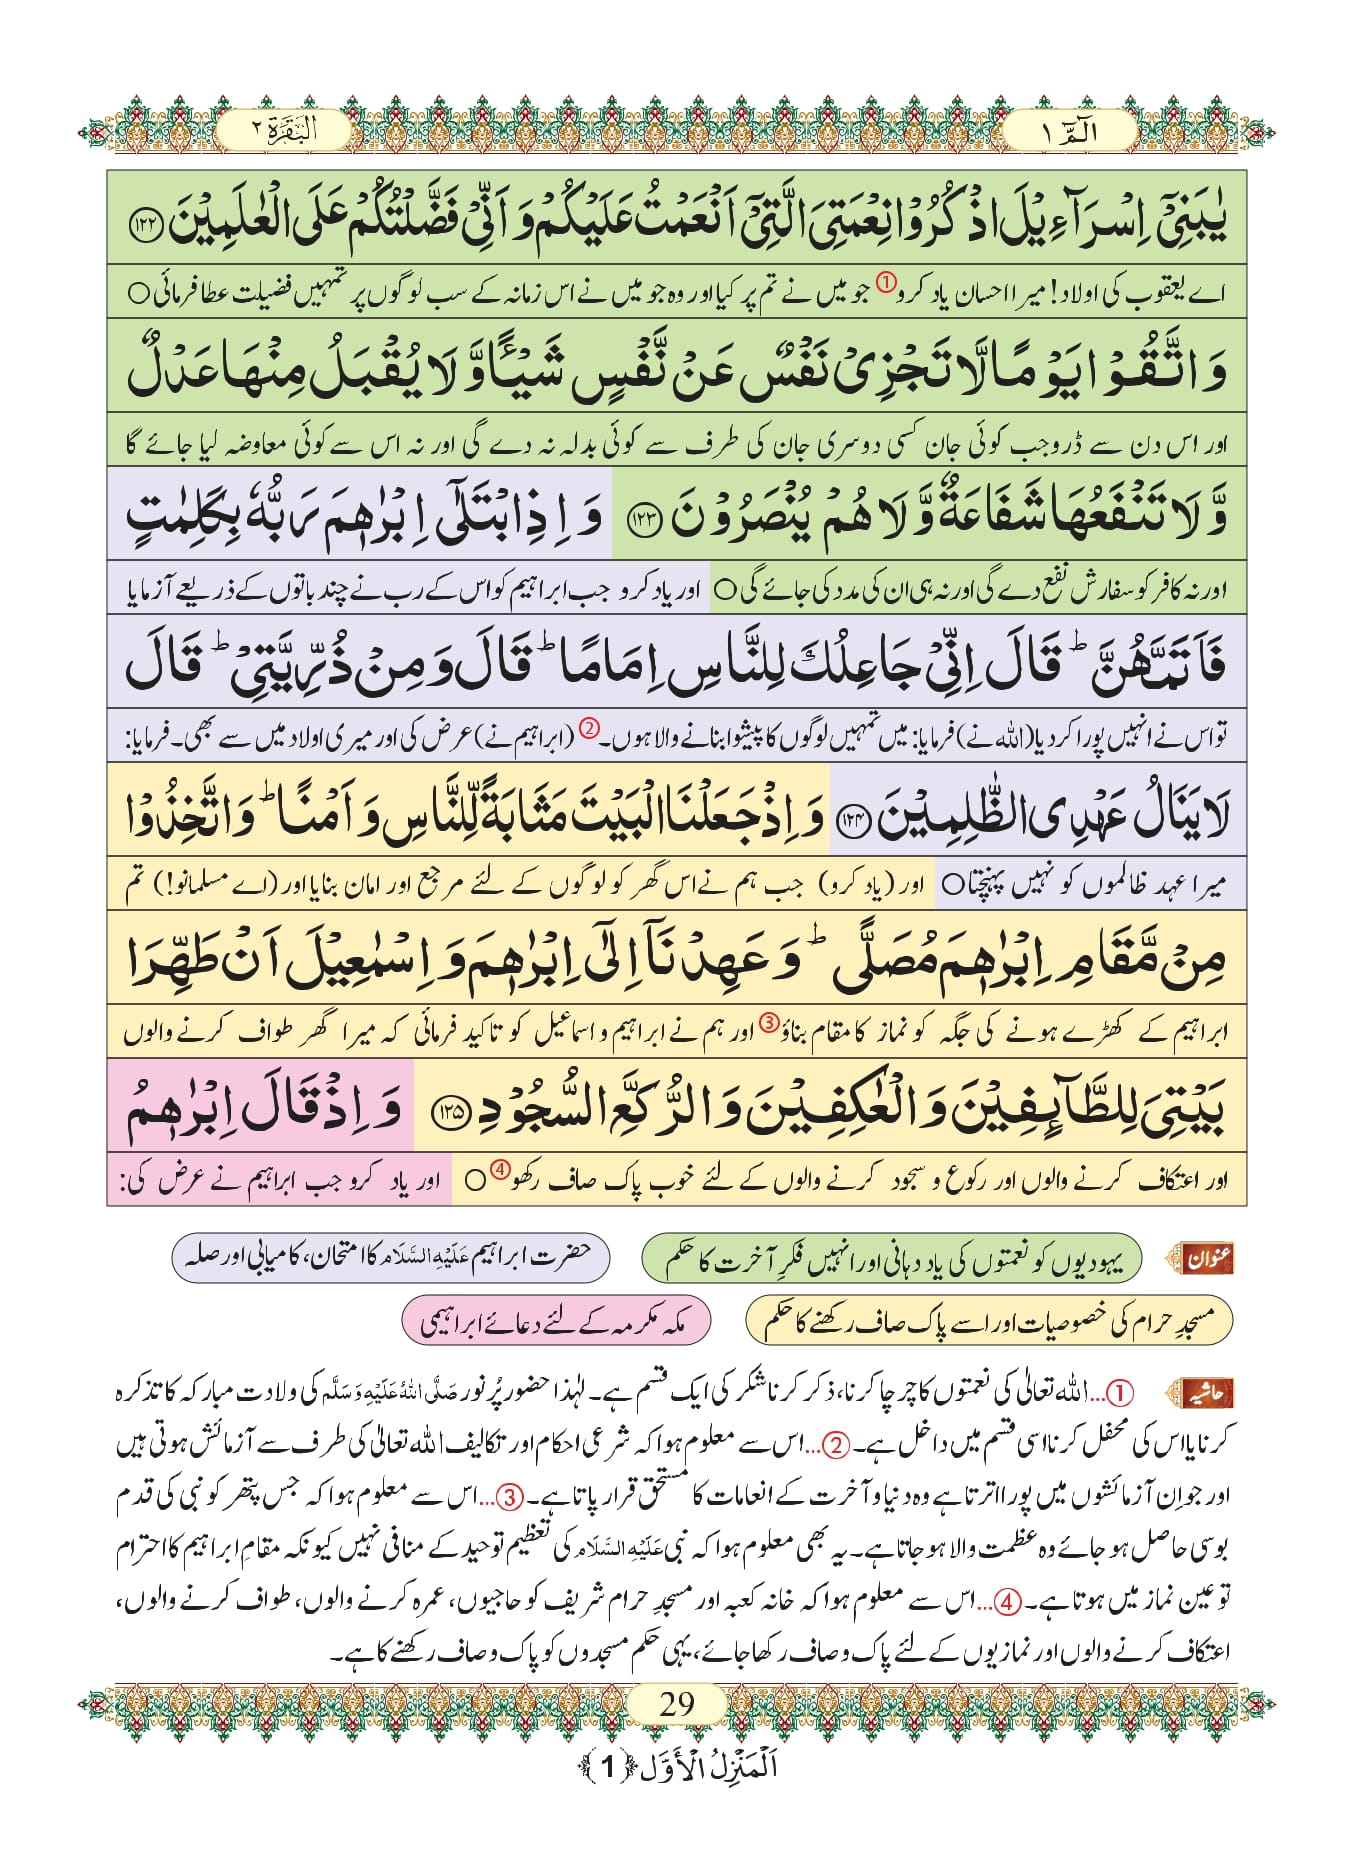 الٓمّٓ ١
البقرة ٢
یٰبَنِیْۤ اِسْرَآءِیْلَ اذْكُرُوْا نِعْمَتِیَ الَّتِیْۤ اَنْعَمْتُ عَلَیْكُمْ وَ اَنِّیْ فَضَّلْتُكُمْ عَلَى الْعٰلَمِیْنَ ﴿۱۲۲﴾
اے یعقوب کی اولاد! میرا احسان یاد کرو ① جو میں نے تم پر کیا اور وہ جو میں نے اس زمانہ کے سب لوگوں پر تمہیں فضیلت عطا فرمائی ○
وَ اتَّقُوْا یَوْمًا لَّا تَجْزِیْ نَفْسٌ عَنْ نَّفْسٍ شَیْــٴًـا وَّ لَا یُقْبَلُ مِنْهَا عَدْلٌ
اور اس دن سے ڈرو جب کوئی جان کسی دوسری جان کی طرف سے کوئی بدلہ نہ دے گی اور نہ اس سے کوئی معاوضہ لیا جائے گا
وَّ لَا تَنْفَعُهَا شَفَاعَةٌ وَّ لَا هُمْ یُنْصَرُوْنَ ﴿۱۲۳﴾ وَ اِذِ ابْتَلٰۤى اِبْرٰهٖمَ رَبُّهٗ بِكَلِمٰتٍ
اور نہ کافر کو سفارش نفع دے گی اور نہ ہی ان کی مدد کی جائے گی ○ اور یاد کرو جب ابراہیم کو اس کے رب نے چند باتوں کے ذریعے آزمایا
فَاَتَمَّهُنَّؕ قَالَ اِنِّیْ جَاعِلُكَ لِلنَّاسِ اِمَامًاؕ قَالَ وَ مِنْ ذُرِّیَّتِیْؕ قَالَ
تو اس نے انہیں پورا کر دیا (اللہ نے) فرمایا: میں تمہیں لوگوں کا پیشوا بنانے والا ہوں۔ ② (ابراہیم نے) عرض کی اور میری اولاد میں سے بھی۔ فرمایا:
لَا یَنَالُ عَهْدِی الظّٰلِمِیْنَ ﴿۱۲۴﴾ وَ اِذْ جَعَلْنَا الْبَیْتَ مَثَابَةً لِّلنَّاسِ وَ اَمْنًاؕ وَ اتَّخِذُوْا
میرا عہد ظالموں کو نہیں پہنچتا ○ اور (یاد کرو) جب ہم نے اس گھر کو لوگوں کے لئے مرجع اور امان بنایا اور (اے مسلمانو!) تم
مِنْ مَّقَامِ اِبْرٰهٖمَ مُصَلًّىؕ وَ عَهِدْنَاۤ اِلٰۤى اِبْرٰهٖمَ وَ اِسْمٰعِیْلَ اَنْ طَهِّرَا
ابراہیم کے کھڑے ہونے کی جگہ کو نماز کا مقام بناؤ ③ اور ہم نے ابراہیم و اسماعیل کو تاکید فرمائی کہ میرا گھر طواف کرنے والوں
بَیْتِیَ لِلطَّآىٕفِیْنَ وَ الْعٰكِفِیْنَ وَ الرُّكَّعِ السُّجُوْدِ ﴿۱۲۵﴾ وَ اِذْ قَالَ اِبْرٰهٖمُ
اور اعتکاف کرنے والوں اور رکوع و سجود کرنے والوں کے لئے خوب پاک صاف رکھو ④ ○ اور یاد کرو جب ابراہیم نے عرض کی:
عنوان یہودیوں کو نعمتوں کی یاد دہانی اور انہیں فکرِ آخرت کا حکم حضرت ابراہیم عَلَیْهِ السَّلَام کا امتحان، کامیابی اور صلہ
مسجدِ حرام کی خصوصیات اور اسے پاک صاف رکھنے کا حکم مکہ مکرمہ کے لئے دعائے ابراہیمی
حاشیہ ①...اللہ تعالیٰ کی نعمتوں کا چرچا کرنا، ذکر کرنا شکر کی ایک قسم ہے۔ لہٰذا حضور پُر نور صَلَّی اللهُ عَلَیْهِ وَسَلَّم کی ولادت مبارکہ کا تذکرہ
کرنا یا اس کی محفل کرنا اسی قسم میں داخل ہے۔ ②...اس سے معلوم ہوا کہ شرعی احکام اور تکالیف اللہ تعالیٰ کی طرف سے آزمائش ہوتی ہیں
اور جو اِن آزمائشوں میں پورا اترتا ہے وہ دنیا و آخرت کے انعامات کا مستحق قرار پاتا ہے۔ ③...اس سے معلوم ہوا کہ جس پتھر کو نبی کی قدم
بوسی حاصل ہو جائے وہ عظمت والا ہو جاتا ہے۔ یہ بھی معلوم ہوا کہ نبی عَلَیْهِ السَّلَام کی تعظیم توحید کے منافی نہیں کیونکہ مقامِ ابراہیم کا احترام
تو عین نماز میں ہوتا ہے۔ ④...اس سے معلوم ہوا کہ خانہ کعبہ اور مسجدِ حرام شریف کو حاجیوں، عمرہ کرنے والوں، طواف کرنے والوں،
اعتکاف کرنے والوں اور نمازیوں کے لئے پاک و صاف رکھا جائے، یہی حکم مسجدوں کو پاک و صاف رکھنے کا ہے۔
29
اَلْمَنْزِلُ الْاَوَّل ﴿1﴾